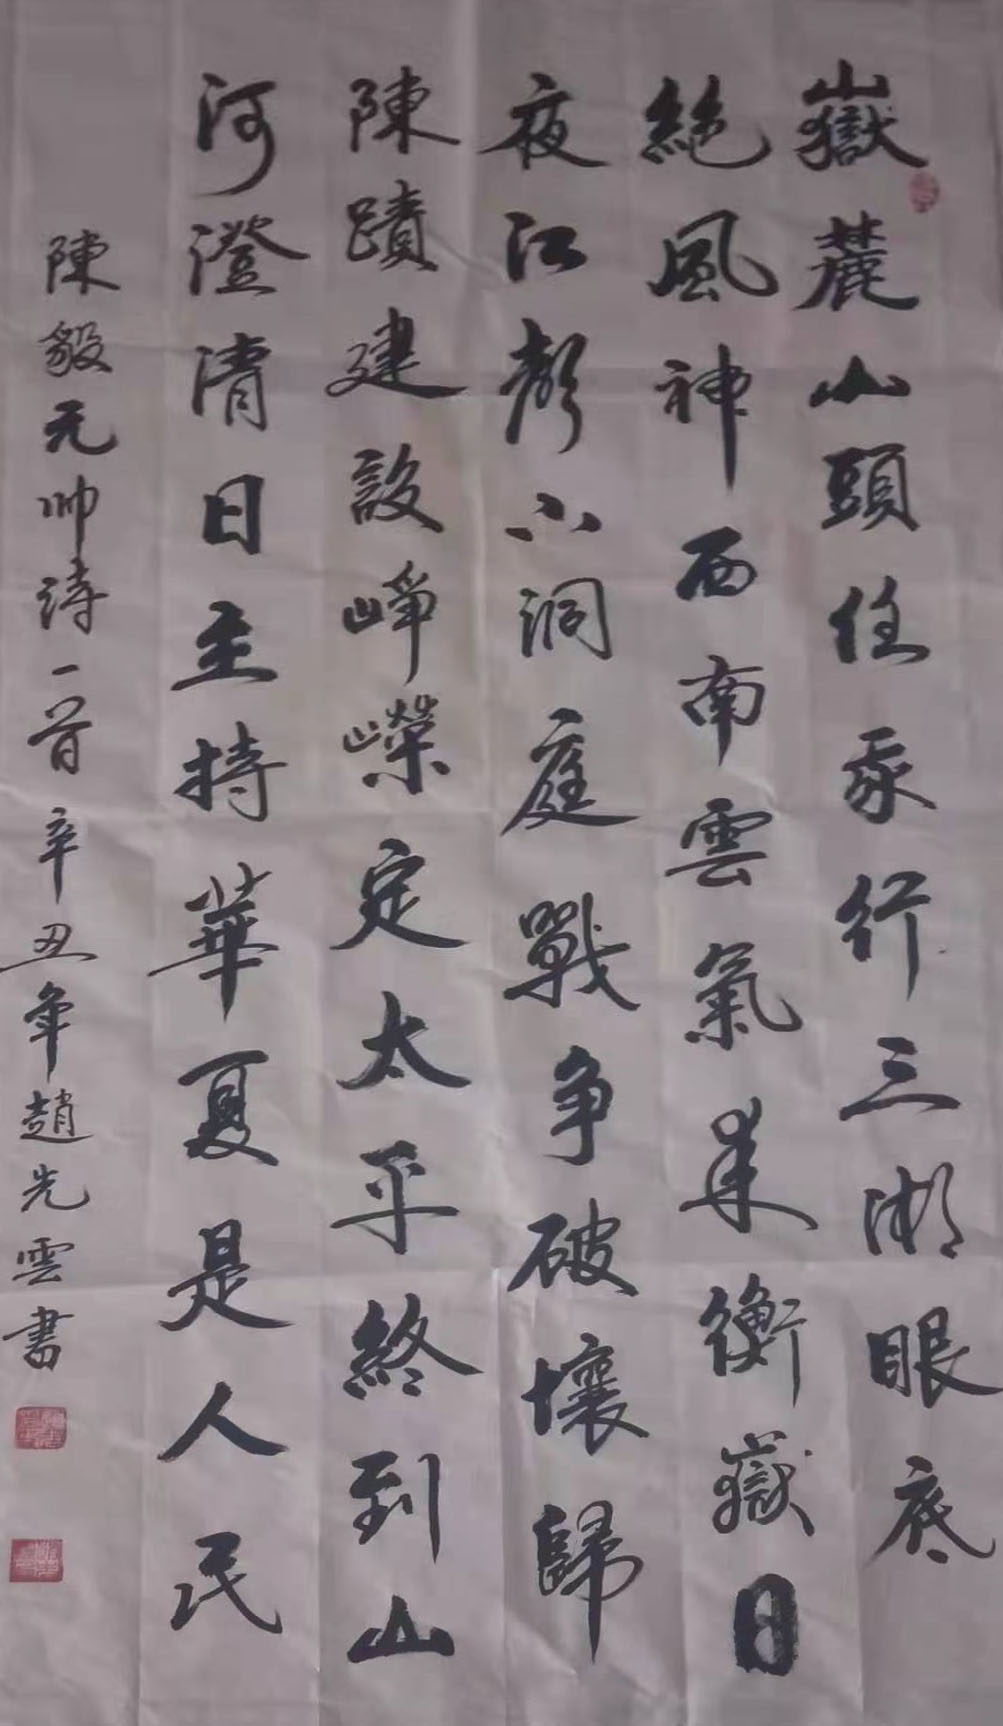 嶽麓山頭任我行三湘眼底
絕風神西南雲氣來衡嶽日
夜江聲下洞庭戰爭破壞歸
陳蹟建設崢嶸定太平終到山
河澄清日主持華夏是人民
陳毅元帥詩一首辛丑年趙先雲書